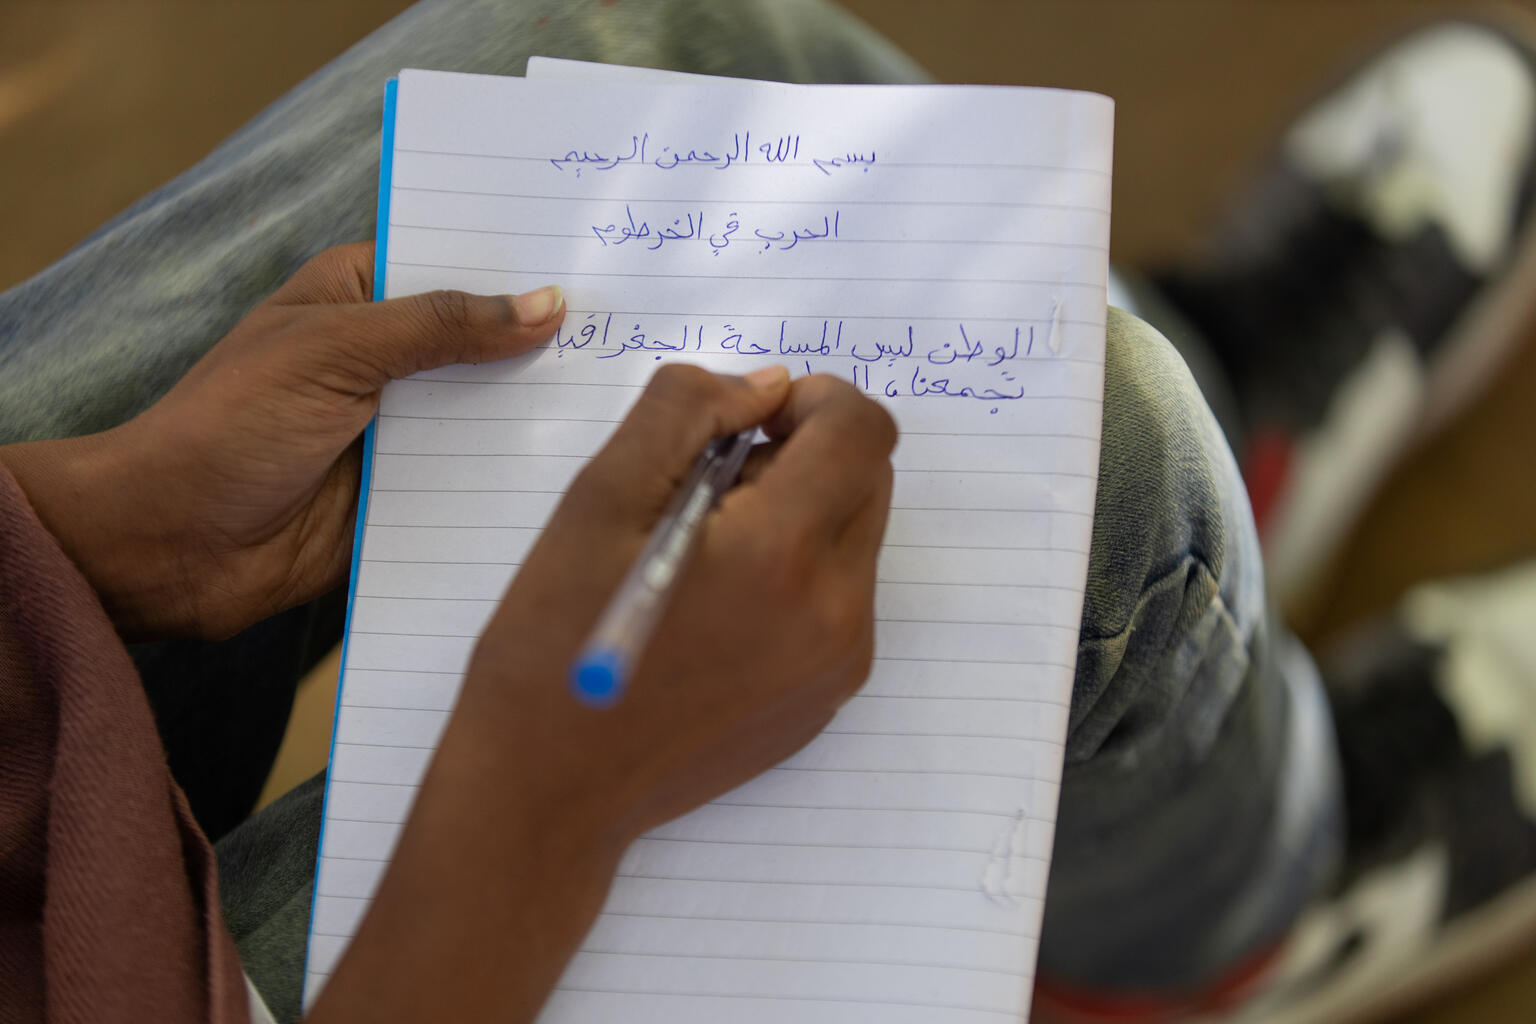 بسم الله الرحمن الرحيم
الحرب في الخرطوم
الوطن ليس المساحة الجغرافيا
تجمعنا،